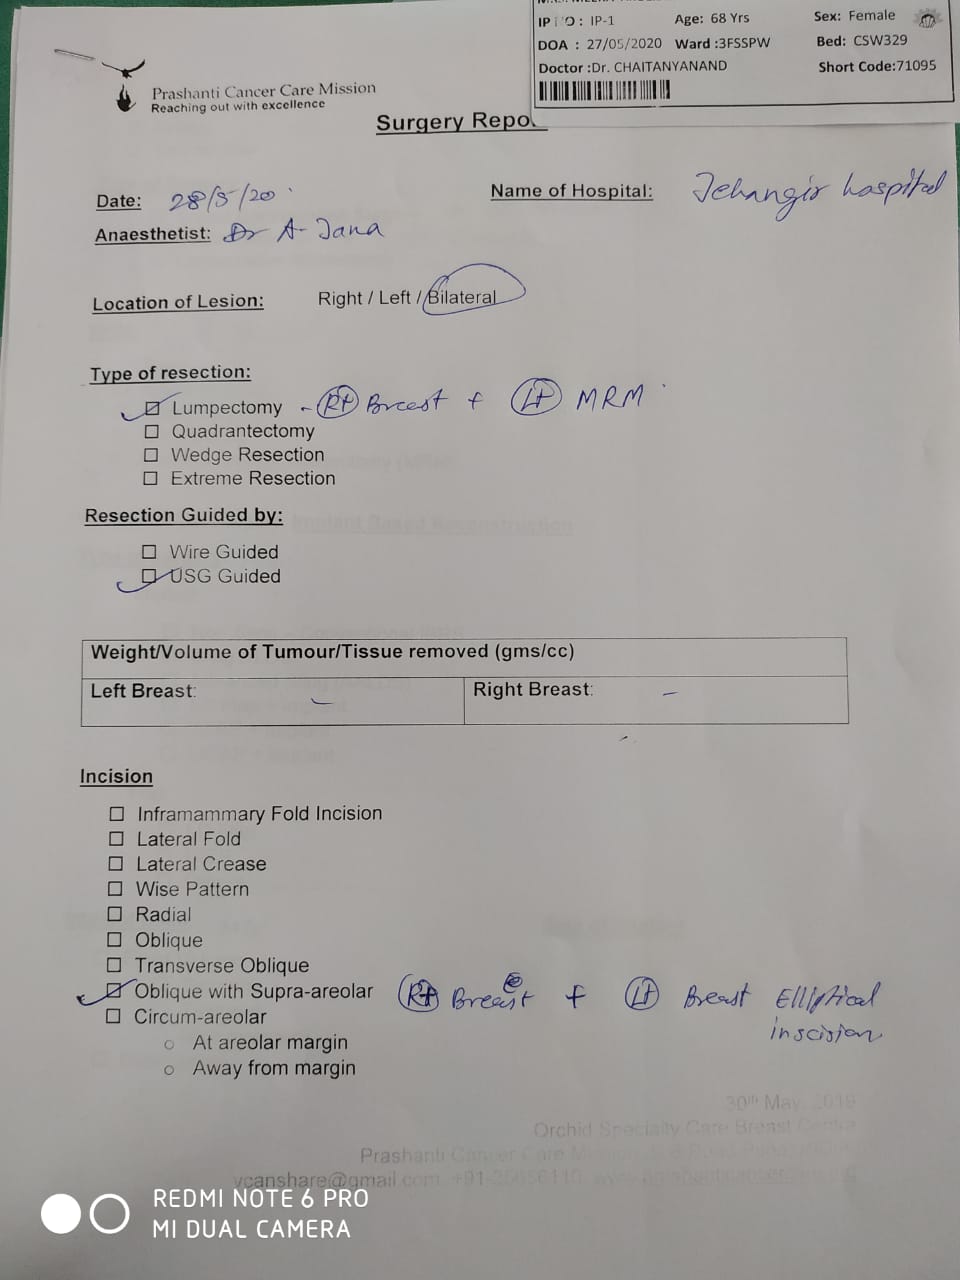 IP NO: IP-1 Age: 68 Yrs Sex: Female
DOA : 27/05/2020 Ward :3FSSPW Bed: CSW329
Doctor :Dr. CHAITANYANAND Short Code:71095
Prashanti Cancer Care Mission
Reaching out with excellence
Surgery Repo
Date: 28/5/20 Name of Hospital: Jehangir hospital
Anaesthetist: Dr A- Jana
Location of Lesion: Right / Left / Bilateral
Type of resection:
☑ Lumpectomy - Rt Breast + Lt MRM
☐ Quadrantectomy
☐ Wedge Resection
☐ Extreme Resection
Resection Guided by:
☐ Wire Guided
☑ USG Guided
Weight/Volume of Tumour/Tissue removed (gms/cc)
Left Breast: - Right Breast: -
Incision
☐ Inframammary Fold Incision
☐ Lateral Fold
☐ Lateral Crease
☐ Wise Pattern
☐ Radial
☐ Oblique
☐ Transverse Oblique
☑ Oblique with Supra-areolar Rt Breast + Lt Breast Elliptical
inscision
☐ Circum-areolar
○ At areolar margin
○ Away from margin
30th May, 2019
Orchid Specialty Care Breast Centre
Prashanti Cancer Care Mission
vcanshare@gmail.com
REDMI NOTE 6 PRO
MI DUAL CAMERA